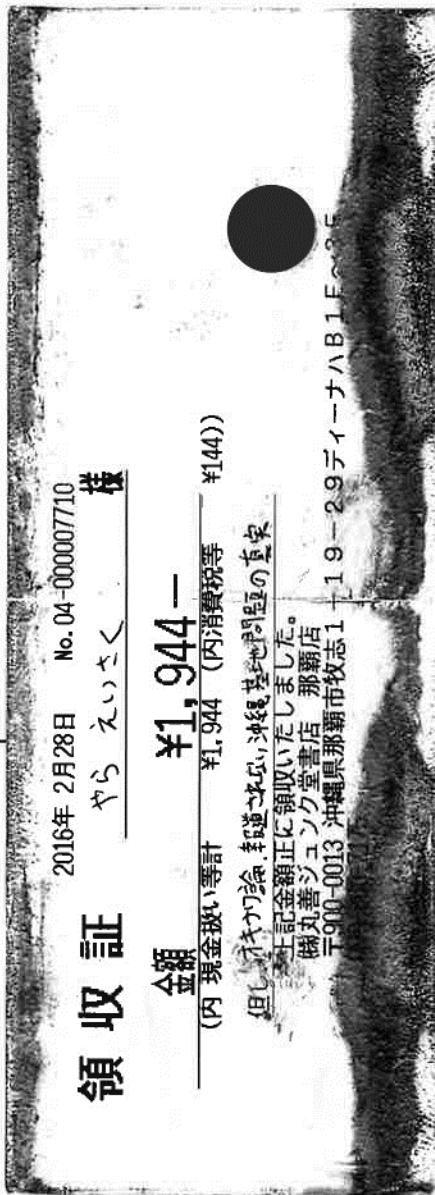 領収証
2016年 2月28日 No.04-000007710
やら えいさく 様
金額 ¥1,944―
(内 現金扱い等計 ¥1,944 (内消費税等 ¥144))
但し、オキナワ論、報道されない沖縄基地問題の真実
上記金額正に領収いたしました。
㈱丸善ジュンク堂書店 那覇店
〒900-0013 沖縄県那覇市牧志1-19-29ディーナハB1F~3F